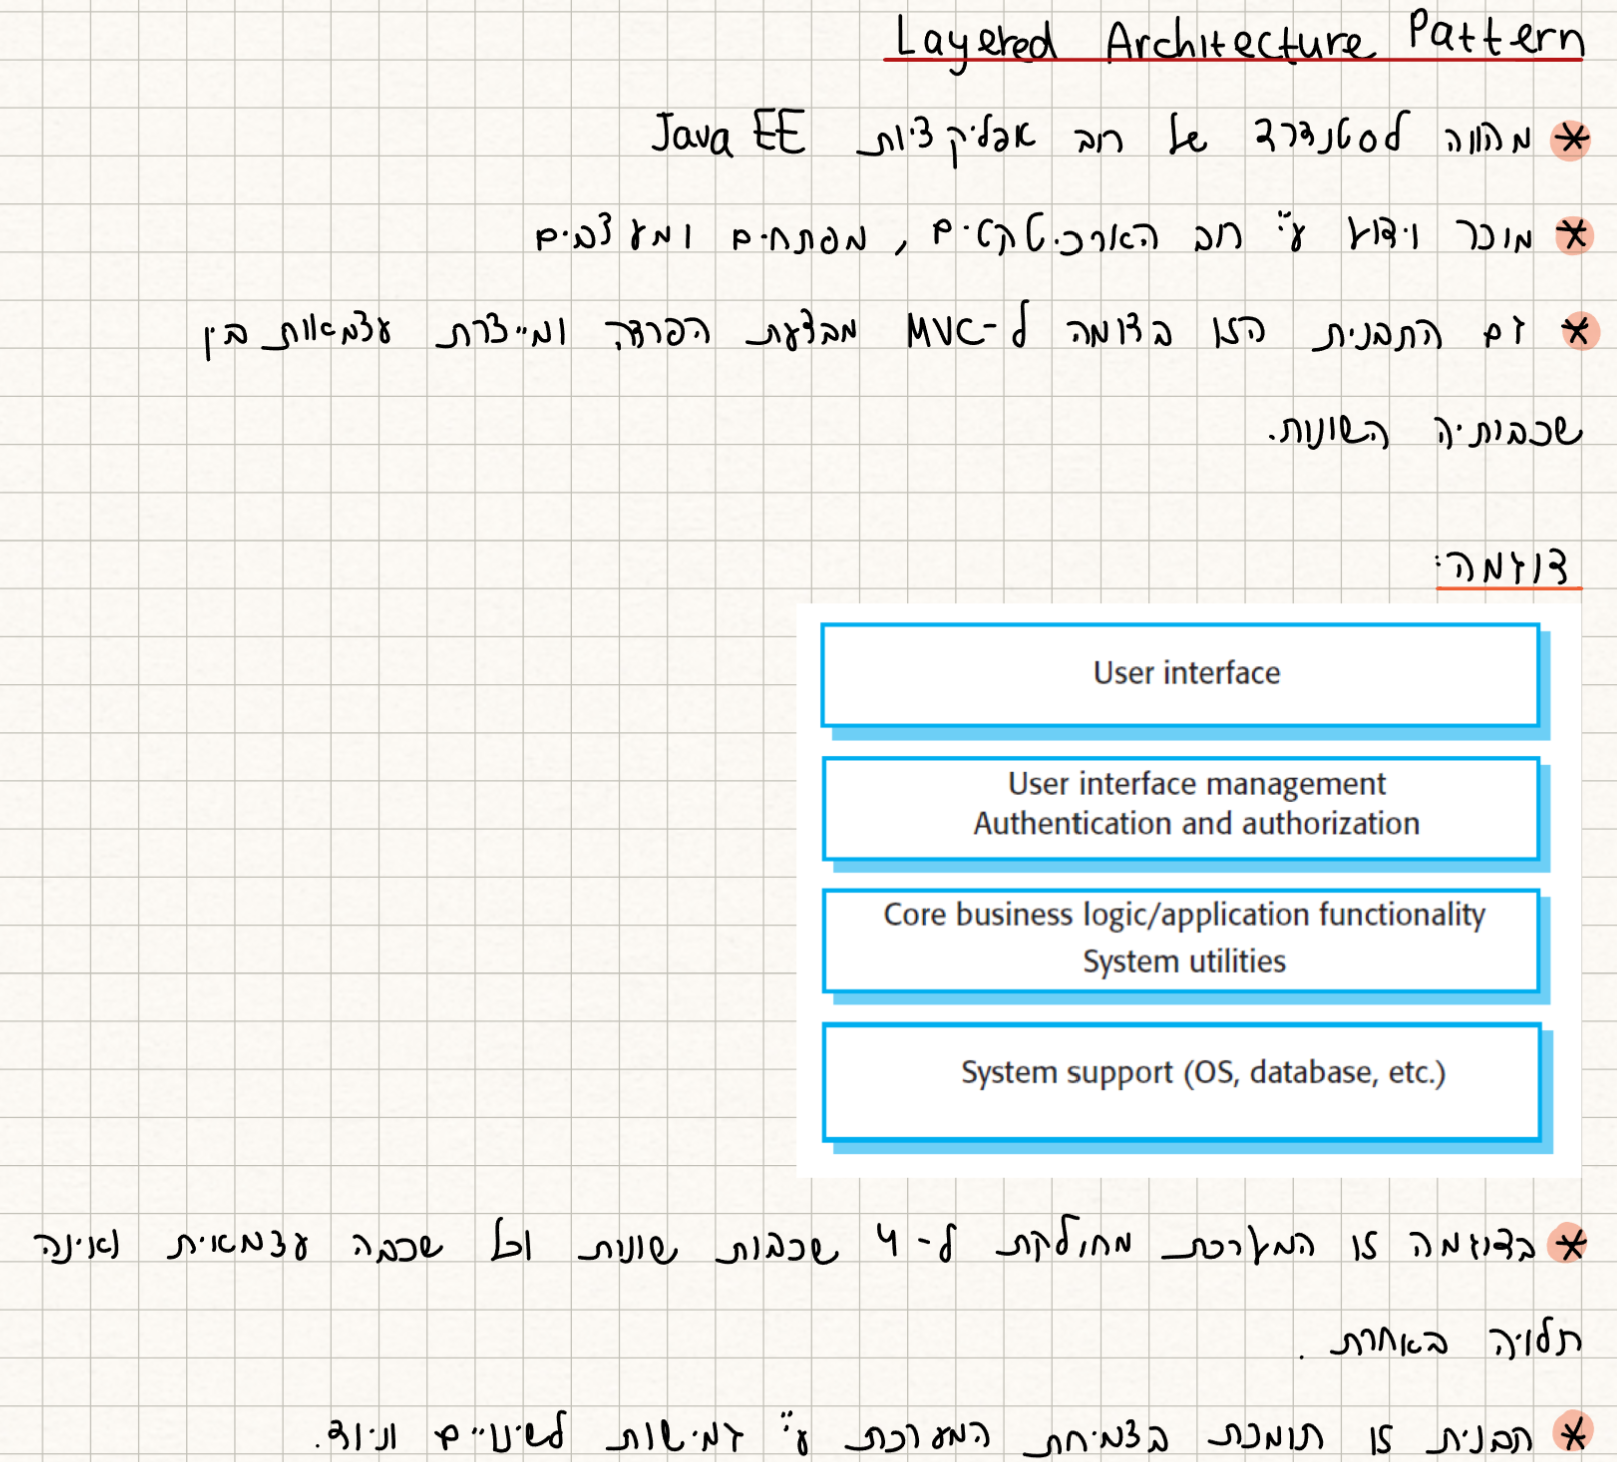 Layered Architecture Pattern
* מהווה לסטנדרד של רוב אפליקציות Java EE
* מוכר וידוע ע"י רוב הארכיטקטים, מפתחים ומעצבים
* גם התבנית הזו בדומה ל-MVC מבצעת הפרדה ומייצרת עצמאות בין
שכבותיה השונות.
דוגמה:
User interface
User interface management
Authentication and authorization
Core business logic/application functionality
System utilities
System support (OS, database, etc.)
* בדוגמה זו המערכת מחולקת ל-4 שכבות שונות וכל שכבה עצמאית ואינה
תלויה באחרת.
* תבנית זו תומכת בצמיחת המערכת ע"י גמישות לשינויים וניוד.